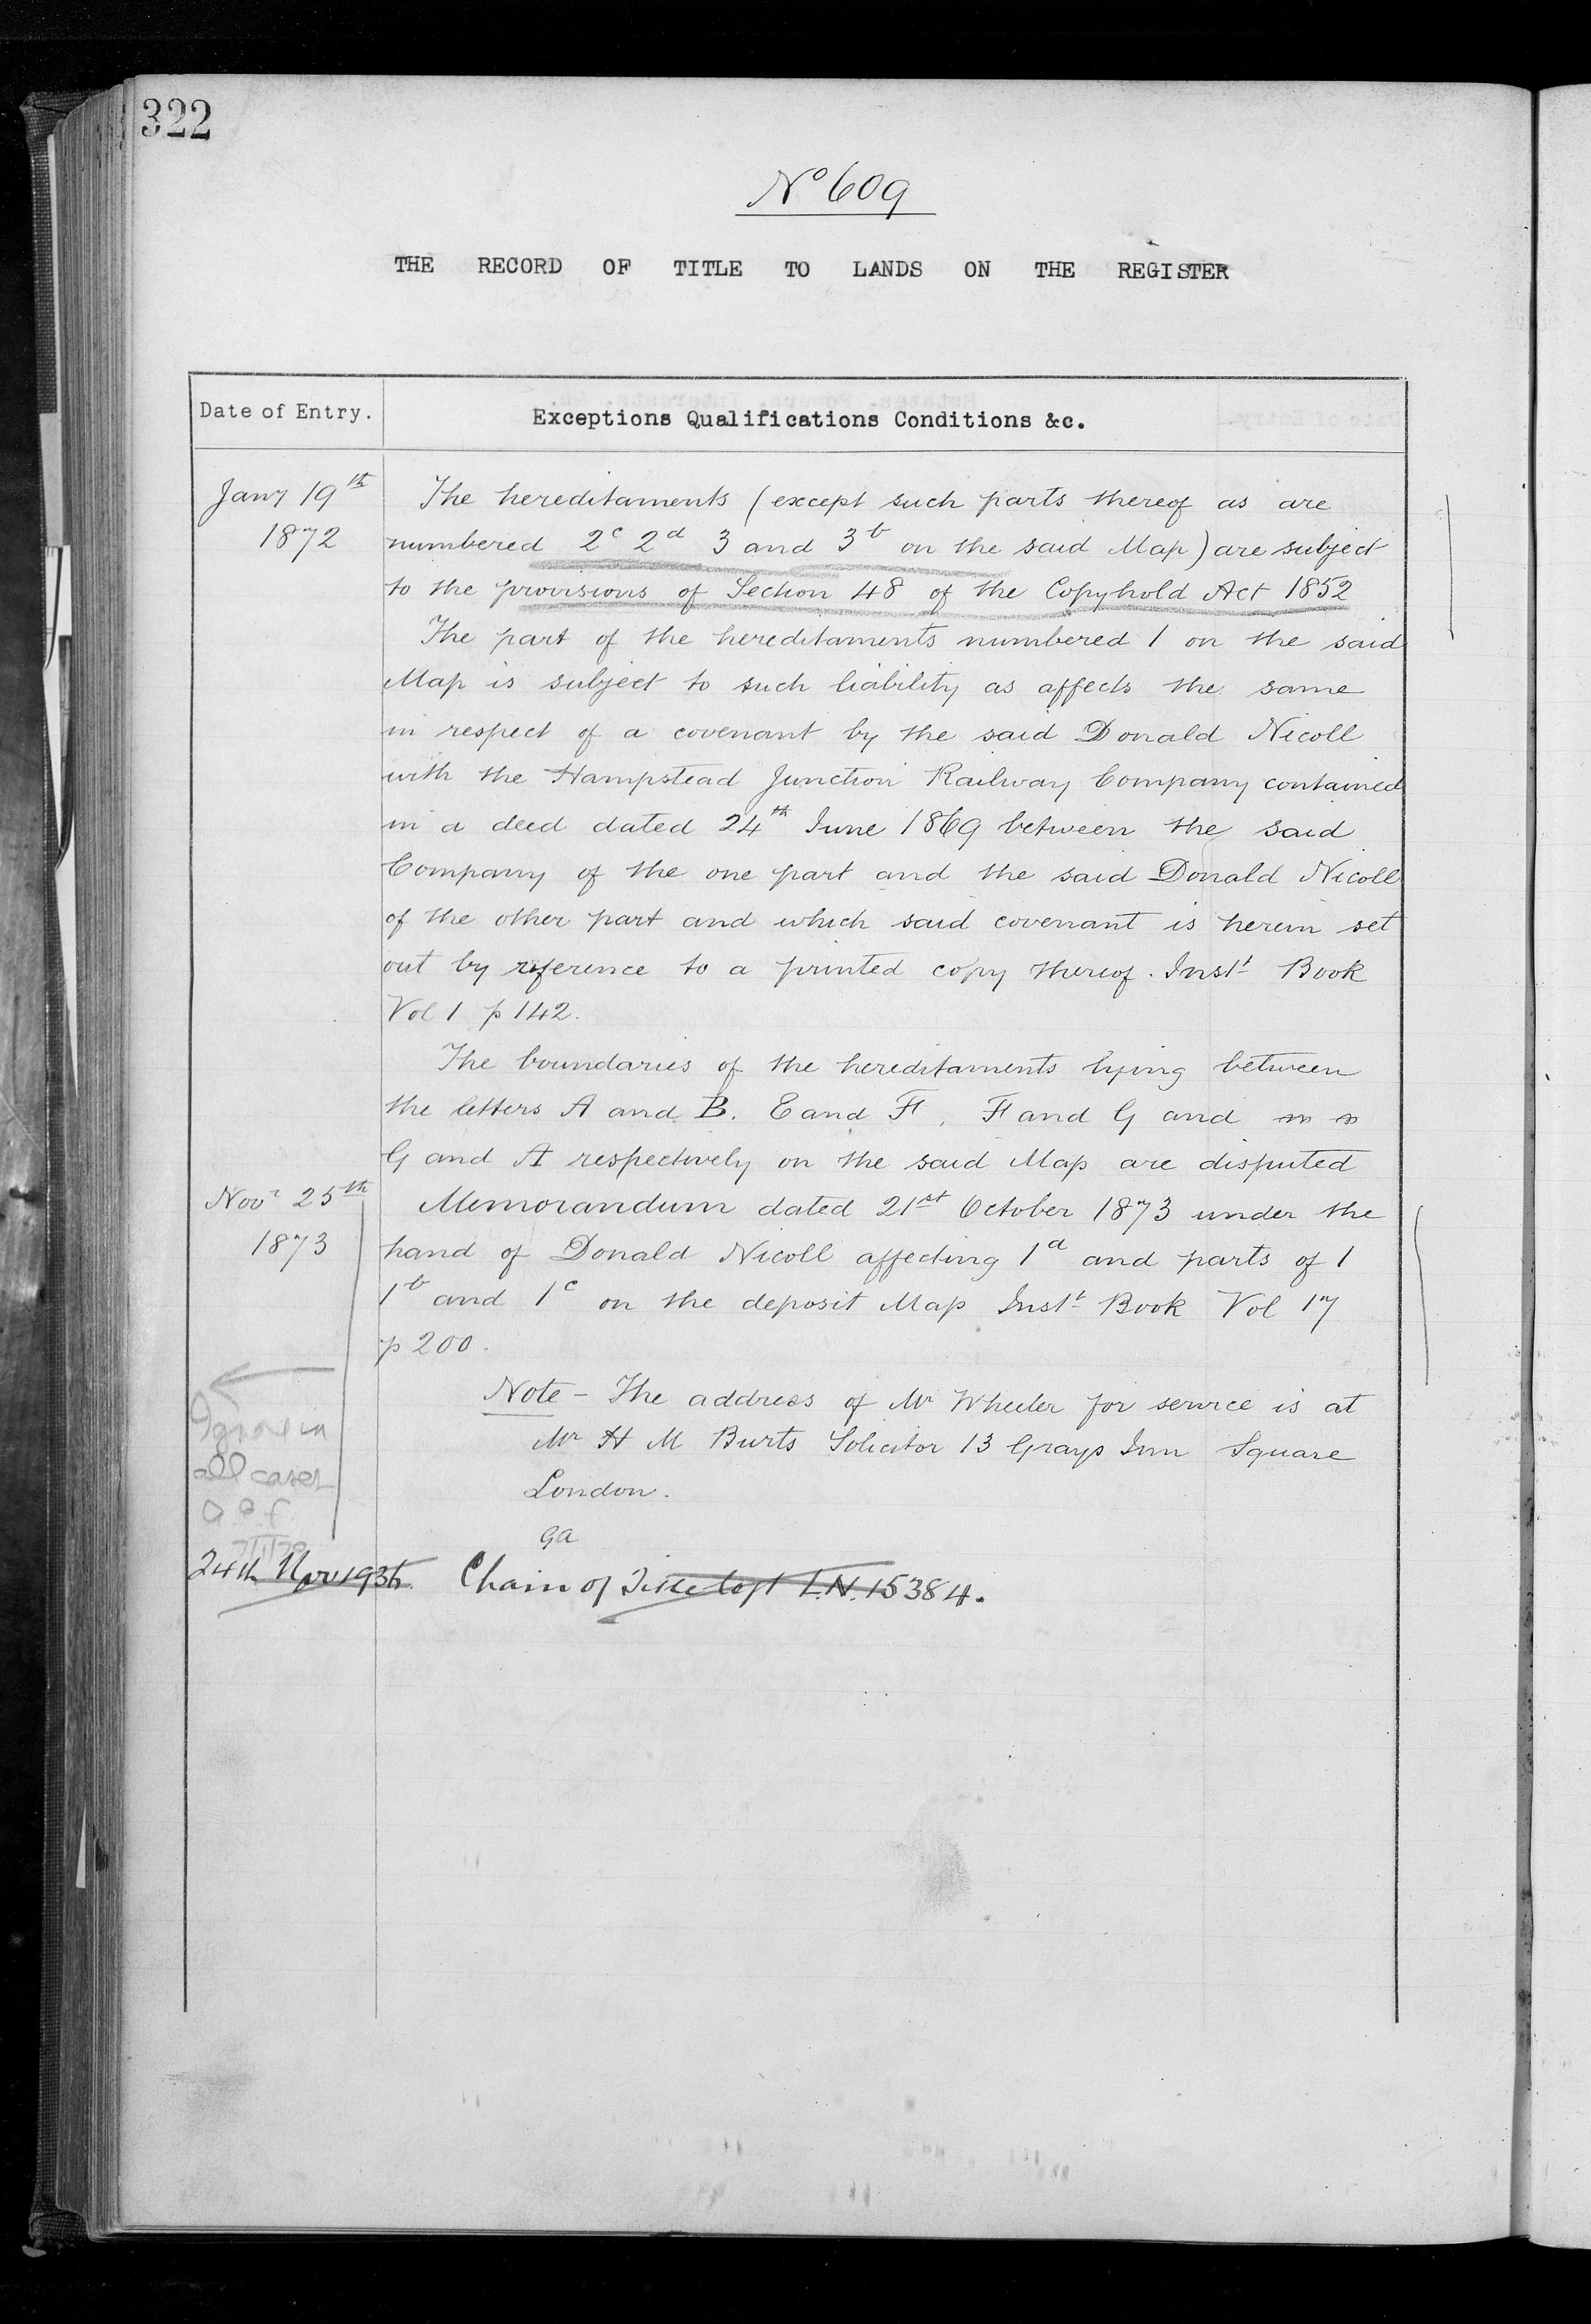 322
No 609
THE RECORD OF TITLE TO LANDS ON THE REGISTER
Date of Entry.
Exceptions Qualifications Conditions &c.
Jany 19th
1872
The hereditaments (except such parts thereof as are
numbered 2c 2d 3 and 3b on the said Map) are subject
to the provisions of Section 48 of the Copyhold Act 1852
The part of the hereditaments numbered 1 on the said
Map is subject to such liability as affects the same
in respect of a covenant by the said Donald Nicoll
with the Hampstead Junction Railway Company contained
in a deed dated 24th June 1869 between the said
Company of the one part and the said Donald Nicoll
of the other part and which said covenant is herein set
out by reference to a printed copy thereof. Inst. Book
Vol 1 p 142.
The boundaries of the hereditaments lying between
the letters A and B. E and F, F and G and
G and A respectively on the said Map are disputed
Novr 25th
1873
Memorandum dated 21st October 1873 under the
hand of Donald Nicoll affecting 1a and parts of 1
1b and 1c on the deposit Map Inst. Book Vol 17
p 200.
Note - The address of Mr Wheeler for service is at
Mr H M Burts Solicitor 13 Grays Inn Square
London.
GA
Ignore in
all cases
24th Nov 1936. Chain of Title to L.N. 15384.